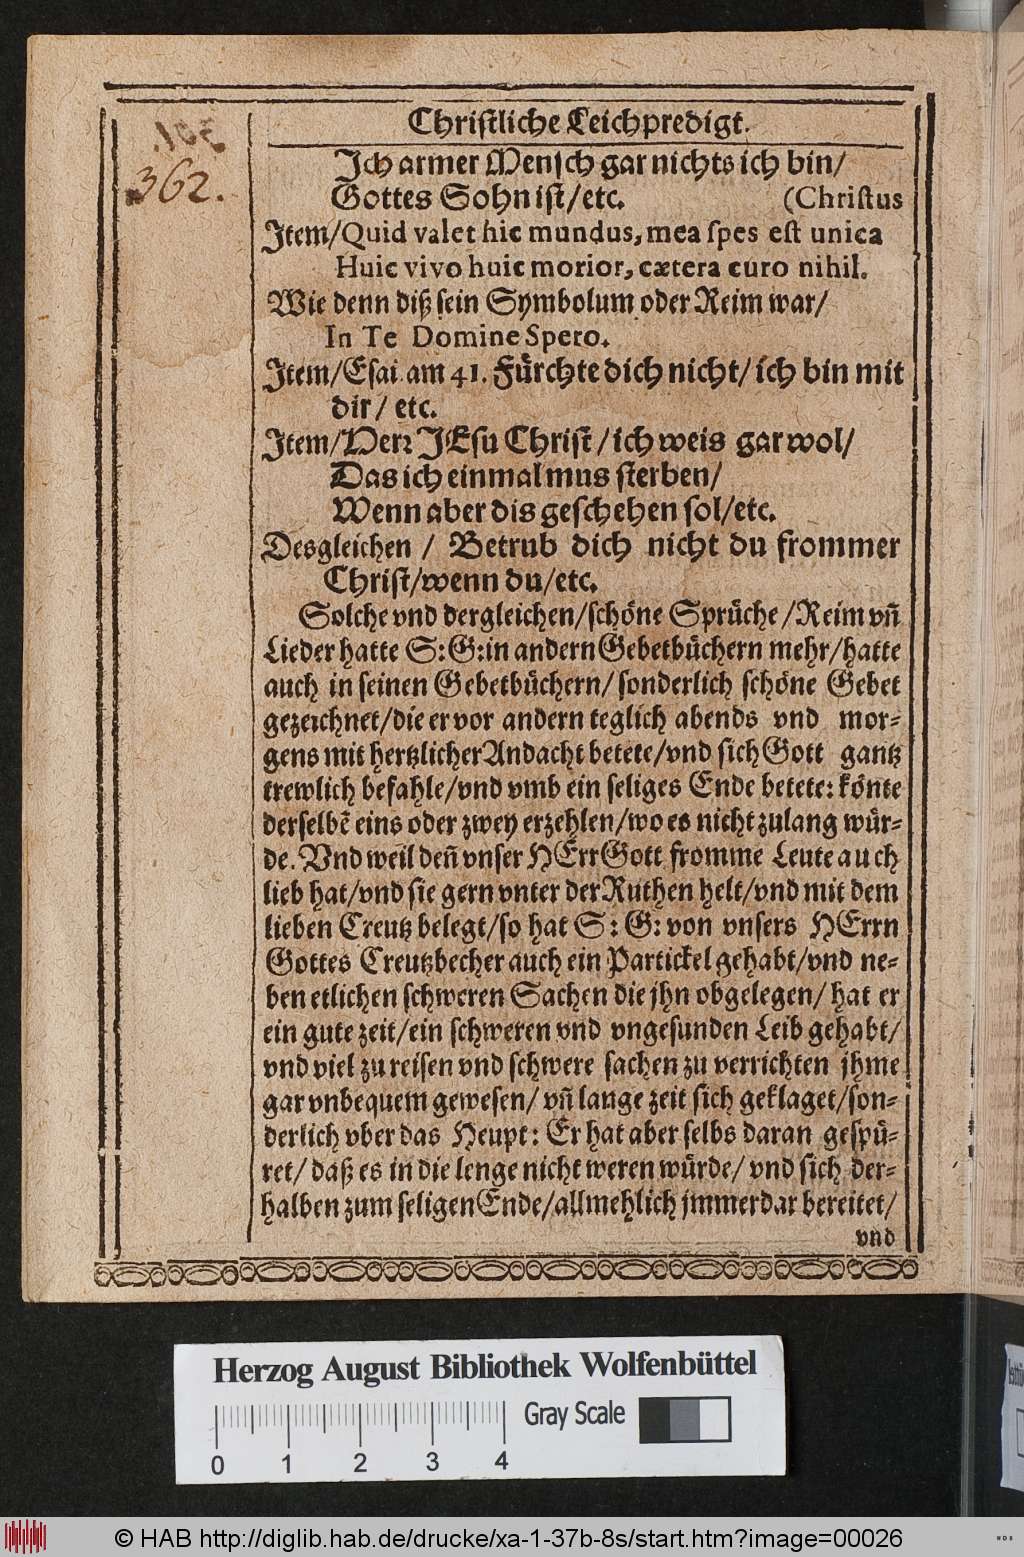 Christliche Leichpredigt.
362.
Ich armer Mensch gar nichts ich bin/
Gottes Sohn ist/etc. (Christus
Item/Quid valet hic mundus, mea spes est unica
Huic vivo huic morior, cætera curo nihil.
Wie denn diß sein Symbolum oder Reim war/
In Te Domine Spero.
Item/Esai. am 41. Fürchte dich nicht/ ich bin mit
dir/ etc.
Item/Herr JEsu Christ/ich weis gar wol/
Das ich einmal mus sterben/
Wenn aber dis geschehen sol/etc.
Desgleichen / Betrub dich nicht du frommer
Christ/wenn du/etc.
Solche vnd dergleichen/schöne Sprüche/Reim vñ
Lieder hatte S:G:in andern Gebetbüchern mehr/hatte
auch in seinen Gebetbüchern/ sonderlich schöne Gebet
gezeichnet/die er vor andern teglich abends vnd mor-
gens mit hertzlicher Andacht betete/vnd sich Gott gantz
trewlich befahle/vnd vmb ein seliges Ende betete: könte
derselbẽ eins oder zwey erzehlen/wo es nicht zulang wür-
de. Vnd weil deñ vnser HErr Gott fromme Leute auch
lieb hat/vnd sie gern vnter der Ruthen helt/vnd mit dem
lieben Creutz belegt/so hat S: G: von vnsers HErrn
Gottes Creutzbecher auch ein Partickel gehabt/vnd ne-
ben etlichen schweren Sachen die jhn obgelegen/ hat er
ein gute zeit/ein schweren vnd vngesunden Leib gehabt/
vnd viel zu reisen vnd schwere sachen zu verrichten jhme
gar vnbequem gewesen/ vñ lange zeit sich geklaget/son-
derlich vber das Heupt: Er hat aber selbs daran gespü-
ret/ daß es in die lenge nicht weren würde/ vnd sich der-
halben zum seligen Ende/allmehlich jmmerdar bereitet/
vnd
Herzog August Bibliothek Wolfenbüttel
Gray Scale
0 1 2 3 4
© HAB http://diglib.hab.de/drucke/xa-1-37b-8s/start.htm?image=00026